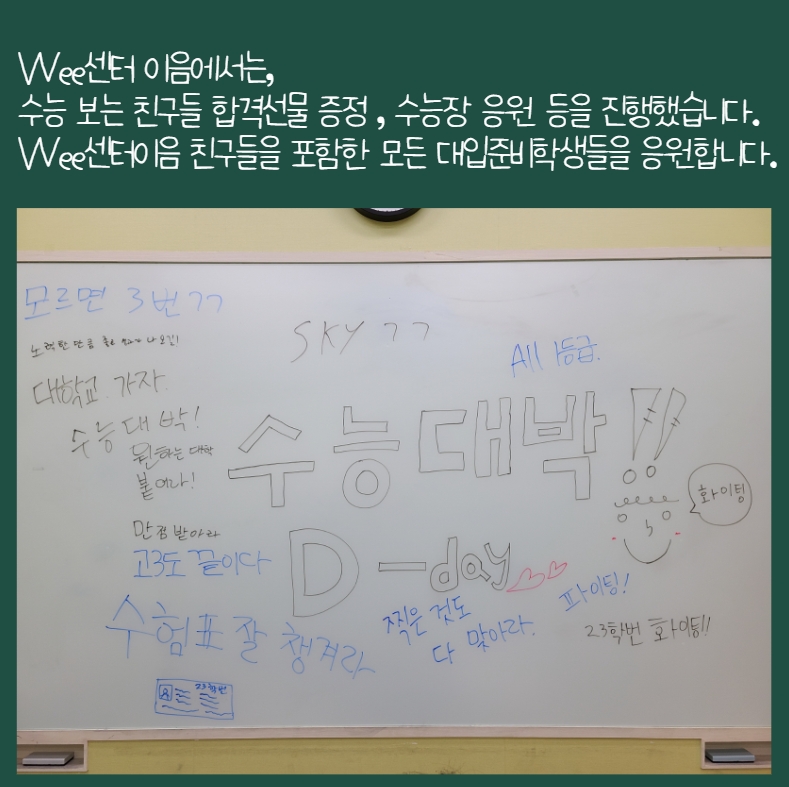 Wee센터 이음에서는,
수능 보는 친구들 합격선물 증정 , 수능장 응원 등을 진행했습니다.
Wee센터이음 친구들을 포함한 모든 대입준비학생들을 응원합니다.
모르면 3번ㄱㄱ
SKY ㄱㄱ
노력한 만큼 나오길!
All 1등급.
대학교 가자
수능대박!
원하는 대학
붙어라!
수능대박!!
화이팅
만점 받아라
고3도 끝이다
D-day
파이팅!
수험표 잘 챙겨라
찍은 것도
다 맞아라.
23학번 화이팅!!
23학번